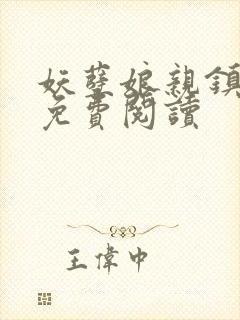 妖孽娘親鎮
免費閱讀
王偉中